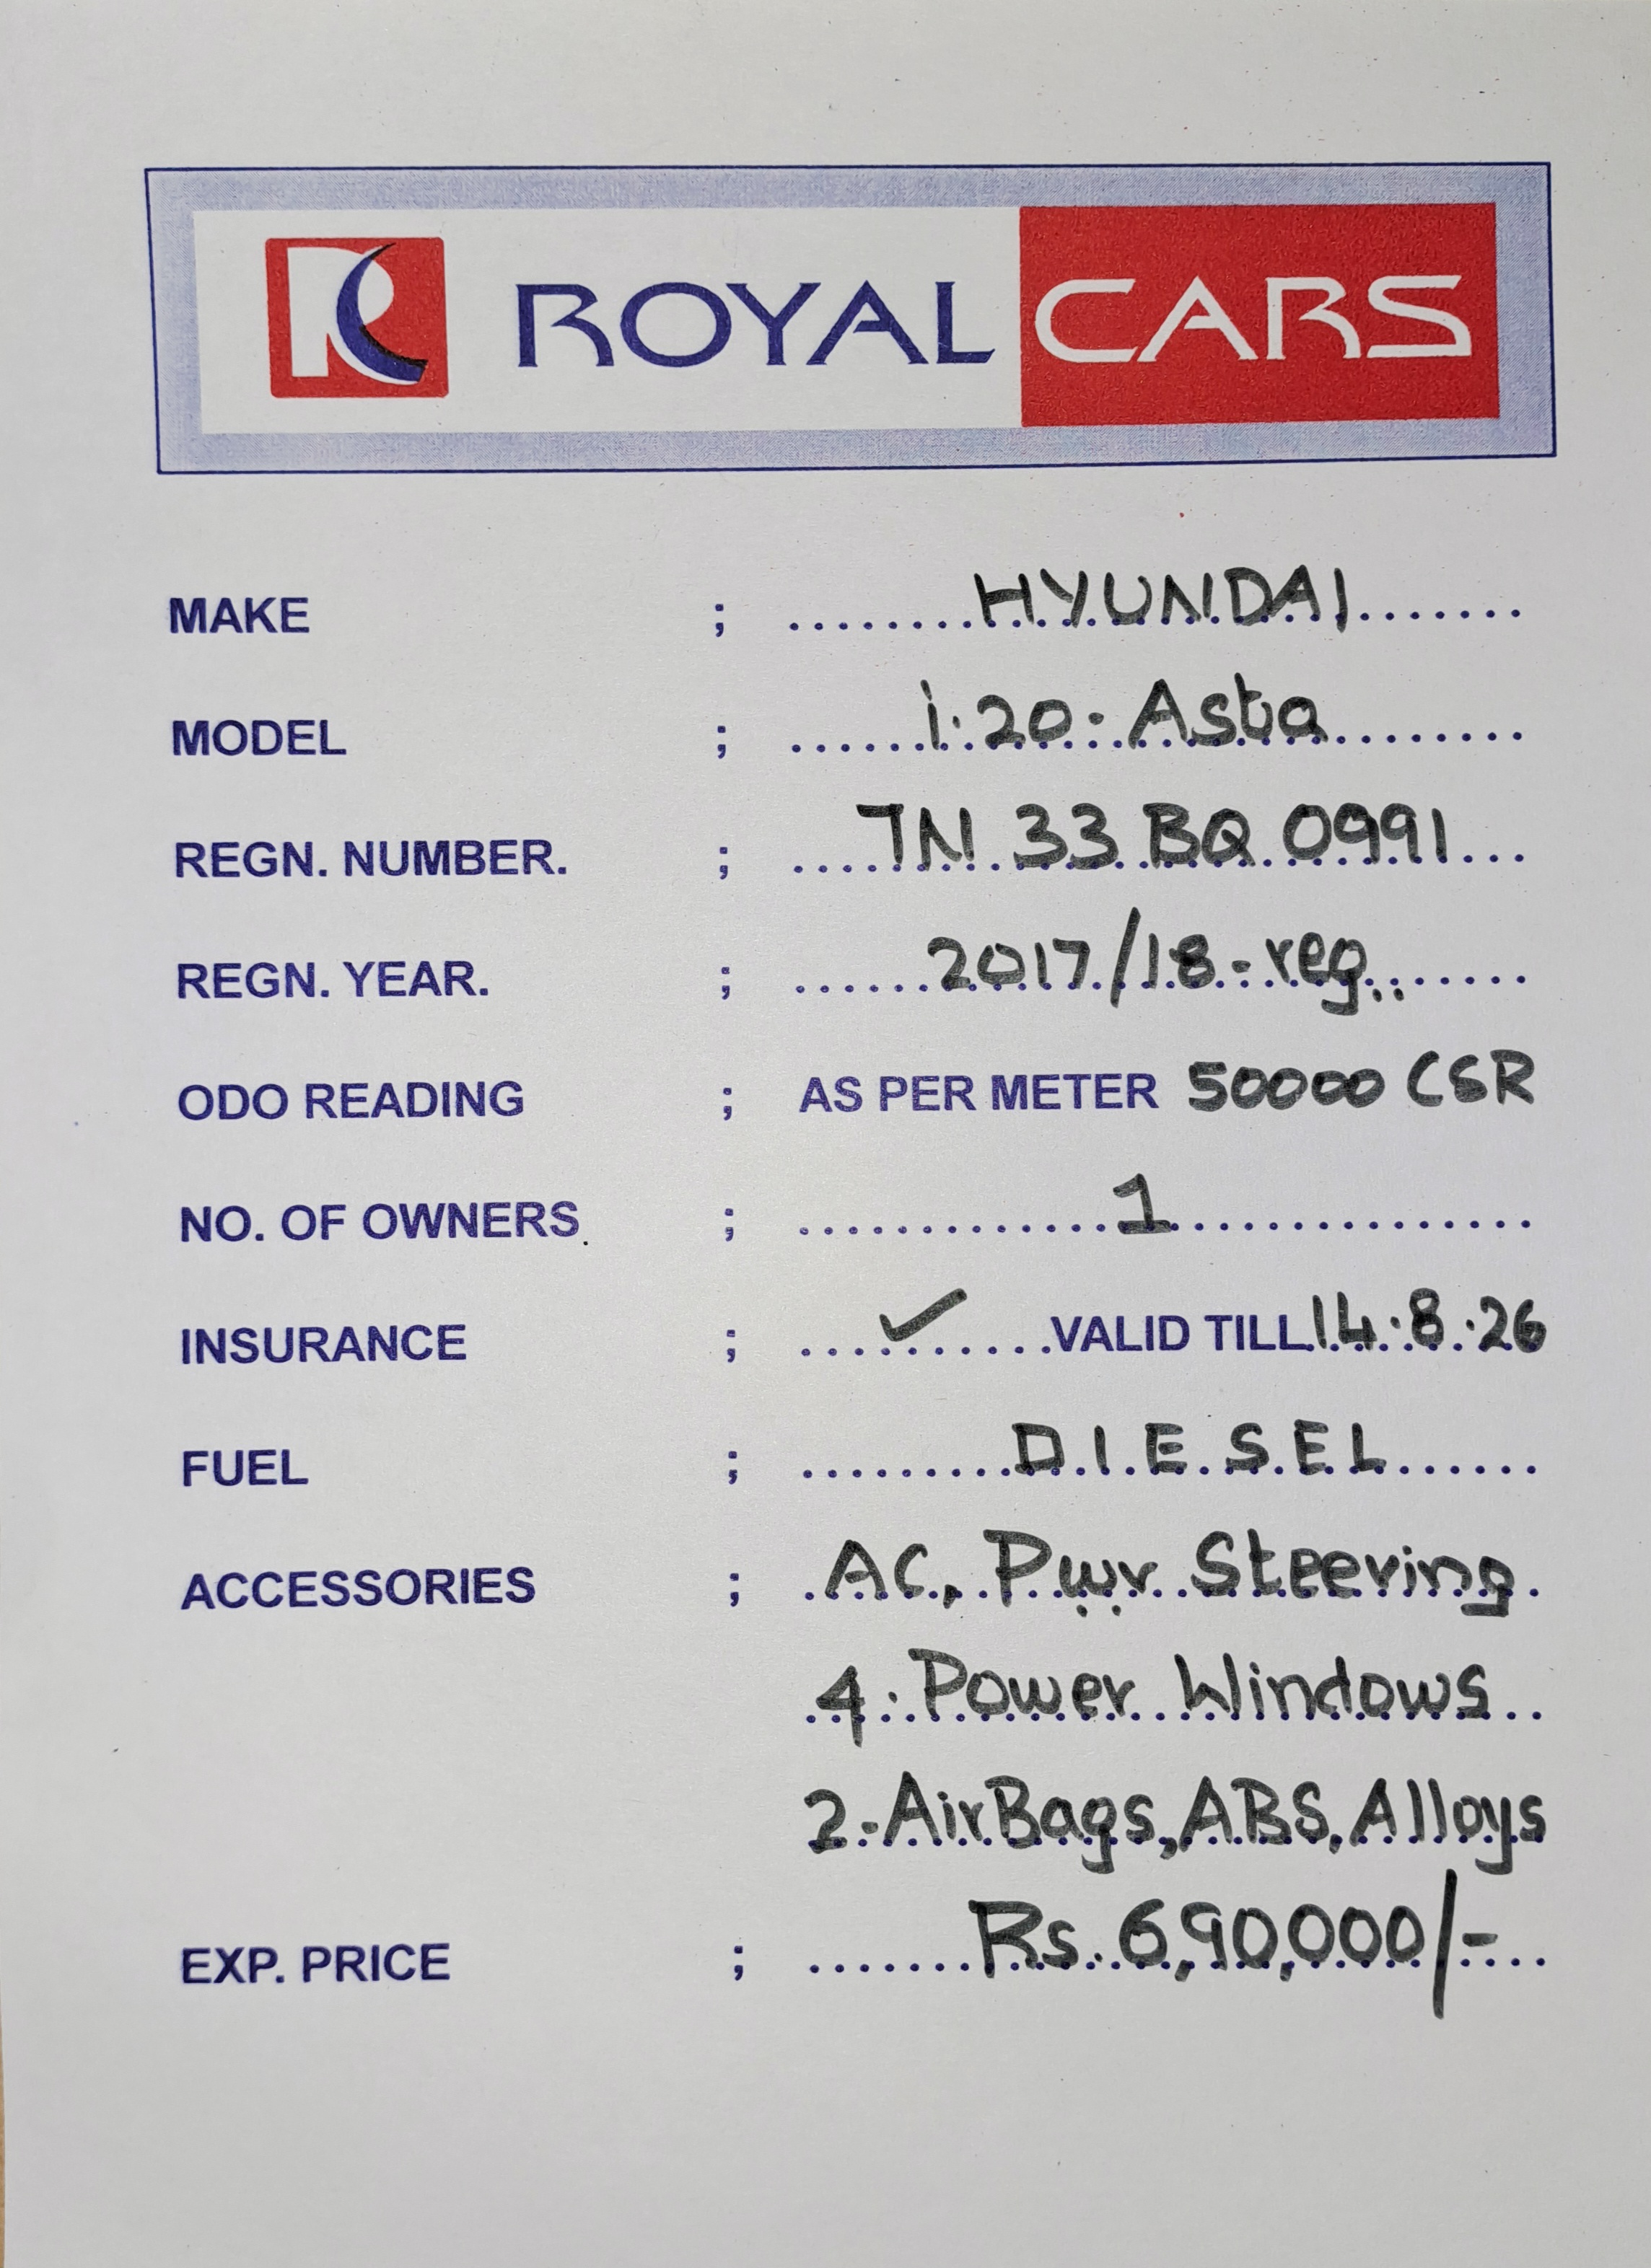 RC ROYAL CARS
MAKE ; HYUNDAI
MODEL ; i.20. Asta
REGN. NUMBER. ; TN 33 BQ 0991
REGN. YEAR. ; 2017/18-reg
ODO READING ; AS PER METER 50000 CSR
NO. OF OWNERS ; 1
INSURANCE ; ✓ VALID TILL 14.8.26
FUEL ; DIESEL
ACCESSORIES ; AC, Pwr Steering
4. Power Windows
2-AirBags, ABS, Alloys
EXP. PRICE ; Rs. 6,90,000/-